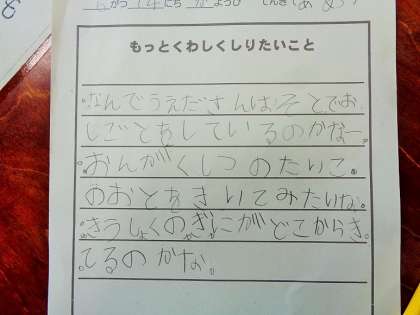 がつ 14にち か ようび てんき
もっとくわしくしりたいこと
・なんでうえださんはそとでお
しごとをしているのかなー。
・おんがくしつのたいこ
のおとをきいてみたいな。
・きゅうしょくのぎゅうにゅうがどこからき
てるのかな。